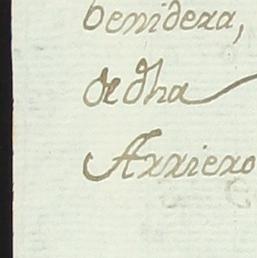 benidera,
de dha
Arriero